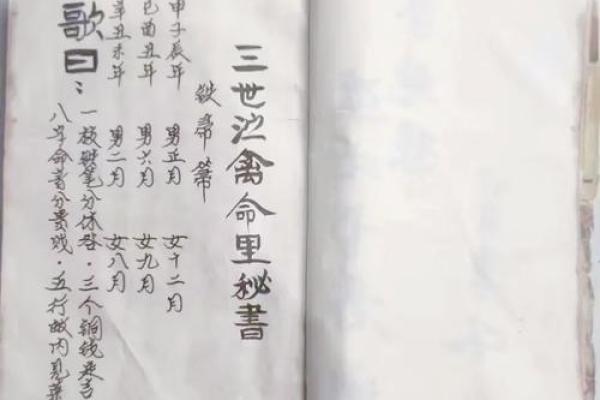 三世禽命里秘書
鉄帚箒
甲子辰年 男正月 女十二月
巳酉丑年 男六月 女九月
辛丑未年 男二月 女八月
歌曰：
一放笔分休咎．三个铜钱
八字命書分贵贱．五行内見